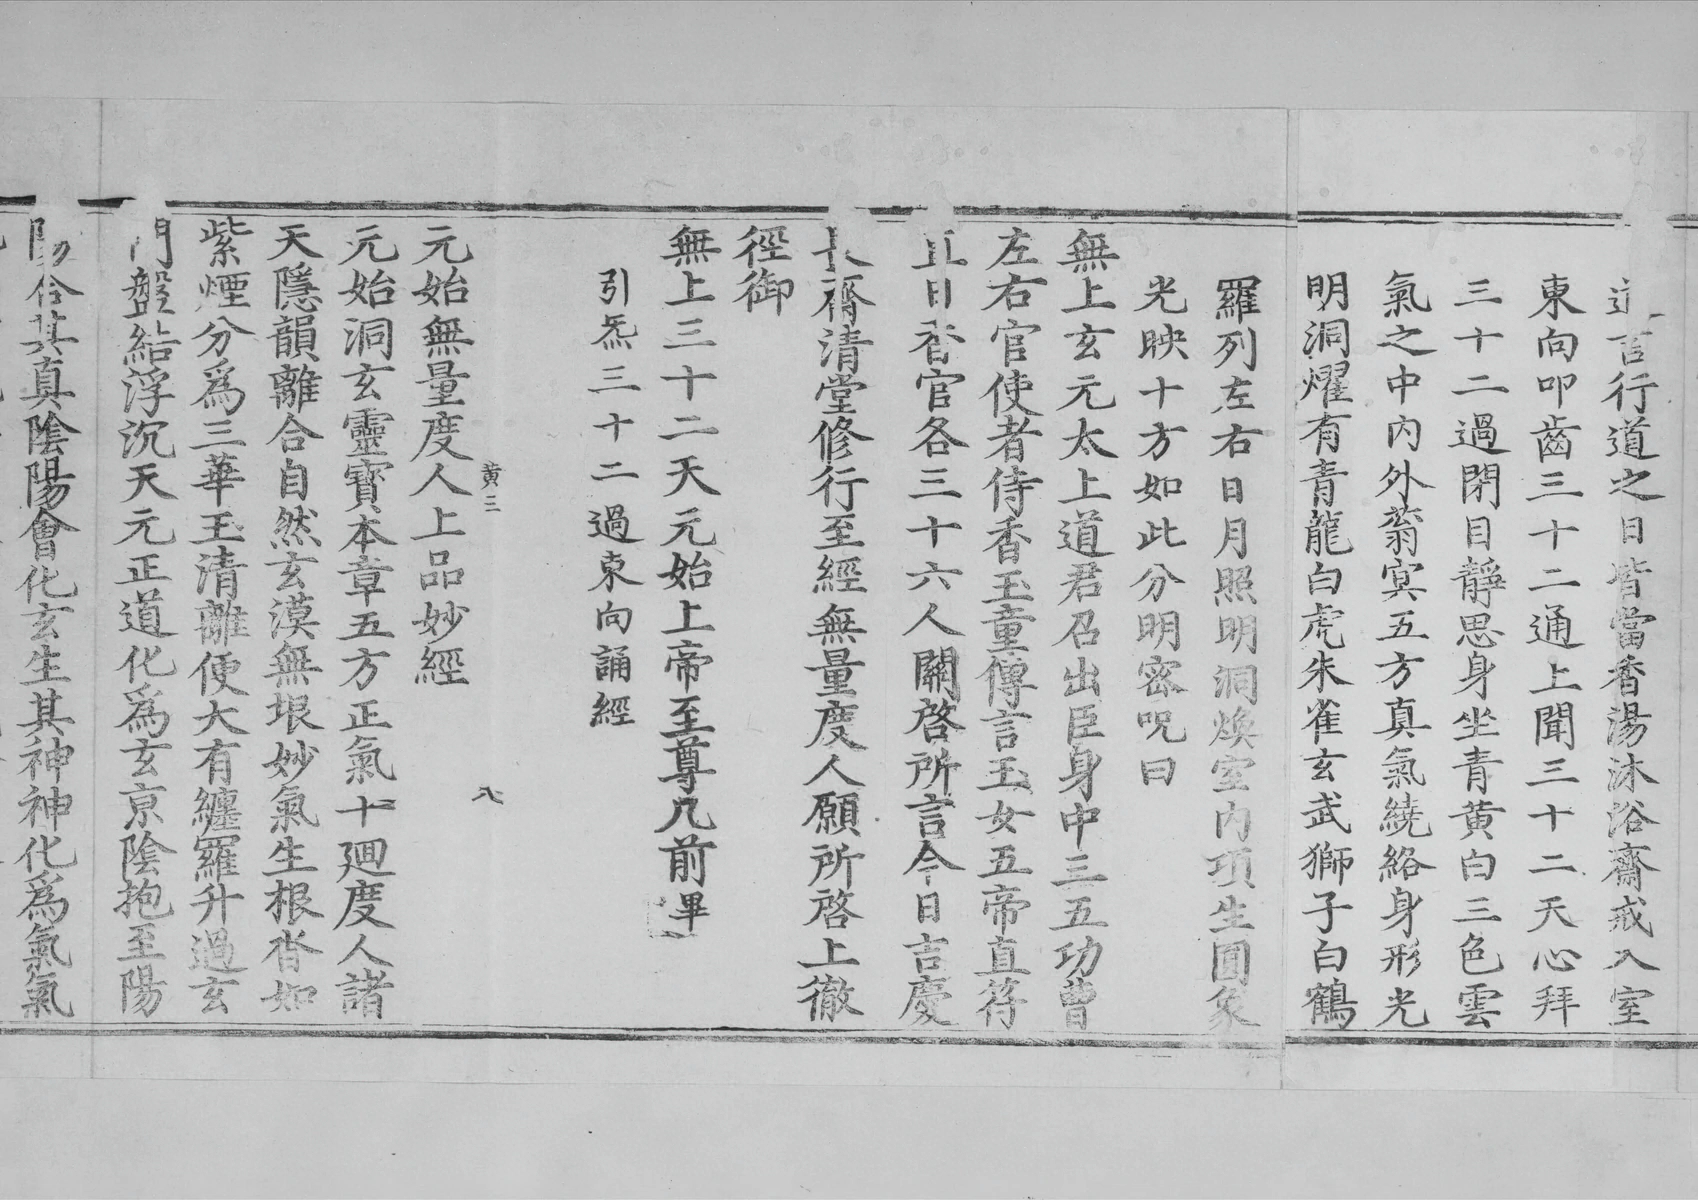 道言行道之日皆當香湯沐浴齋戒入室
東向叩齒三十二通上聞三十二天心拜
三十二過閉目靜思身坐青黄白三色雲
氣之中内外蓊冥五方真氣繞絡身形光
明洞燿有青龍白虎朱雀玄武獅子白鶴
羅列左右日月照明洞煥室内項生圓象
光映十方如此分明密呪曰
無上玄元太上道君召出臣身中三五功曹
左右官使者侍香玉童傳言玉女五帝直符
直日香官各三十六人關啓所言今日吉慶
長齋清堂修行至經無量度人願所啓上徹
徑御
無上三十二天元始上帝至尊几前畢
引炁三十二過東向誦經
黄三
八
元始無量度人上品妙經
元始洞玄靈寶本章五方正氣十廻度人諸
天隱韻離合自然玄漠無垠妙氣生根沓如
紫煙分爲三華玉清離便大有纏羅升過玄
門盤結浮沉天元正道化爲玄京陰抱至陽
陽合其真陰陽會化玄生其神神化爲氣氣